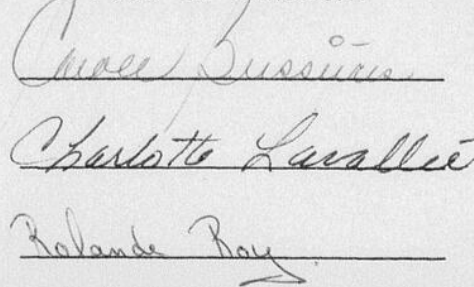 Carole Bussières
Charlotte Lavallée
Rolande Roy